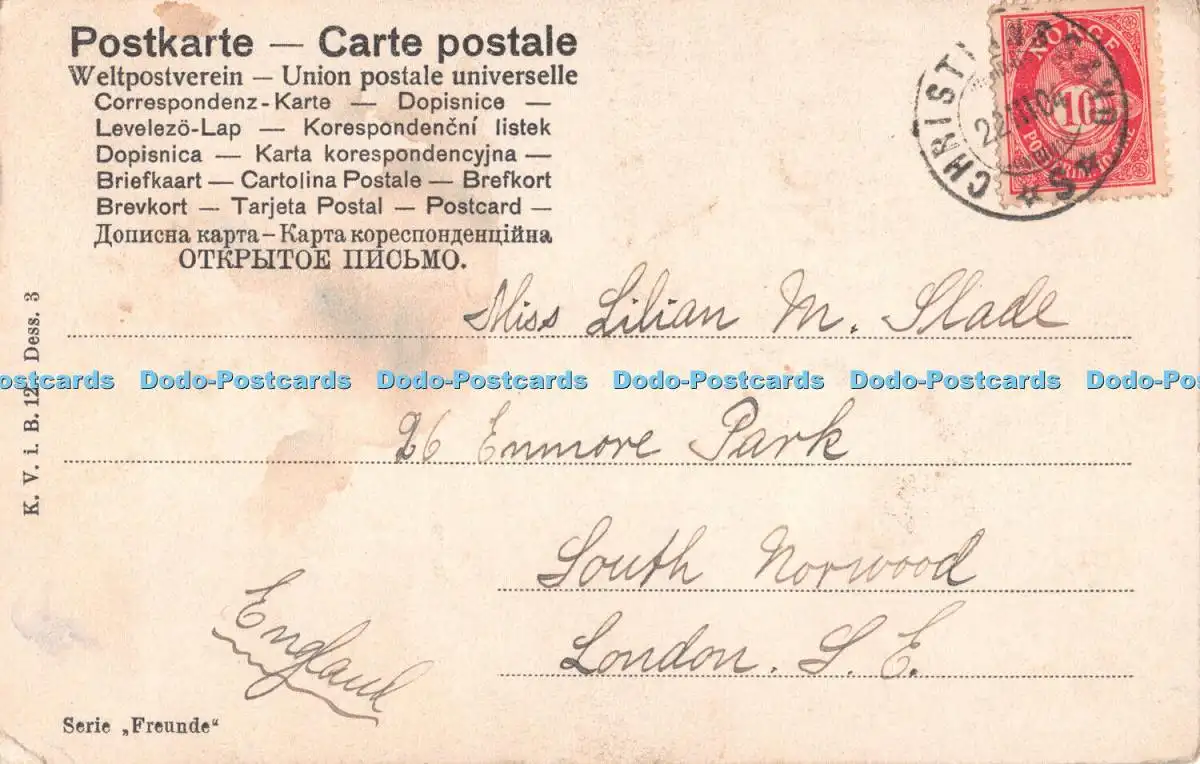 Postkarte — Carte postale
Weltpostverein — Union postale universelle
Correspondenz-Karte — Dopisnice —
Levelezö-Lap — Korespondenční listek
Dopisnica — Karta korespondencyjna —
Briefkaart — Cartolina Postale — Brefkort
Brevkort — Tarjeta Postal — Postcard —
Дописна карта — Карта кореспонденційна
ОТКРЫТОЕ ПИСЬМО.
NORGE
10
CHRISTIANIA
S
Miss Lilian M. Slade
Dodo-Postcards Dodo-Postcards Dodo-Postcards Dodo-Postcards
26 Enmore Park
South Norwood
London. S. E.
England
K. V. i. B. 12 Dess. 3
Serie „Freunde“